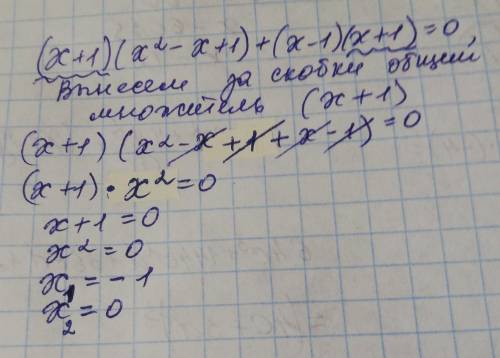 (x+1)(x²-x+1)+(x-1)(x+1)=0
Вынесем за скобки общий
множитель (x+1)
(x+1)(x²-x+1+x-1)=0
(x+1)•x²=0
x+1=0
x²=0
x₁=-1
x₂=0